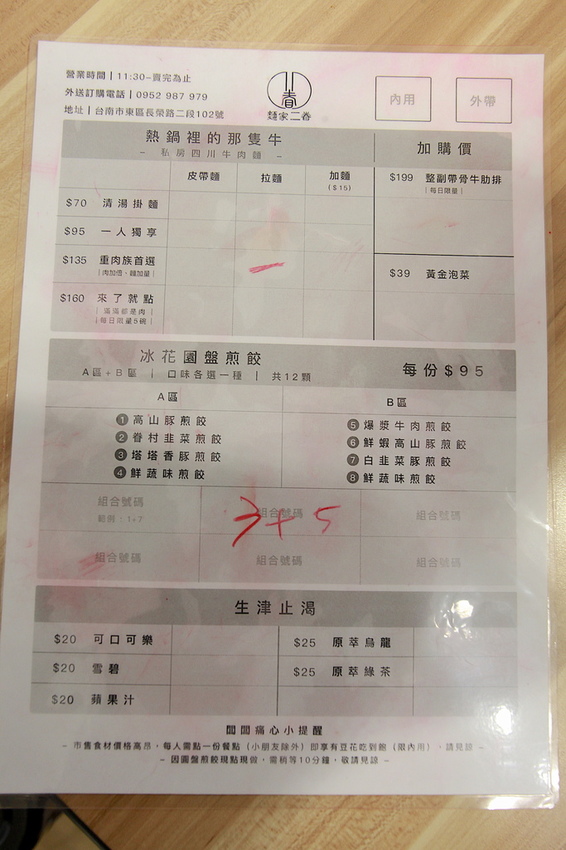 營業時間 | 11:30-賣完為止
外送訂購電話 | 0952 987 979
地址 | 台南市東區長榮路二段102號
麵家二春
內用
外帶
熱鍋裡的那隻牛
– 私房四川牛肉麵 –
皮帶麵 拉麵 加麵
($15)
$70 清湯掛麵
$95 一人獨享
$135 重肉族首選
| 肉加倍、麵加量 |
$160 來了就點
| 滿滿都是肉 |
| 每日限量5碗 |
加購價
$199 整副帶骨牛肋排
| 每日限量 |
$39 黃金泡菜
冰花圓盤煎餃
每份$95
A區+B區 | 口味各選一種 | 共12顆
A區
1 高山豚煎餃
2 眷村韭菜煎餃
3 塔塔香豚煎餃
4 鮮蔬味煎餃
B區
5 爆漿牛肉煎餃
6 鮮蝦高山豚煎餃
7 白韭菜豚煎餃
8 鮮蔬味煎餃
組合號碼 組合號碼 組合號碼
範例：1+7
3+5
組合號碼 組合號碼 組合號碼
生津止渴
$20 可口可樂
$20 雪碧
$20 蘋果汁
$25 原萃烏龍
$25 原萃綠茶
闆闆痛心小提醒
– 市售食材價格高昂，每人需點一份餐點（小朋友除外）即享有豆花吃到飽（限內用），請見諒 –
– 因圓盤煎餃現點現做，需稍等10分鐘，敬請見諒 –